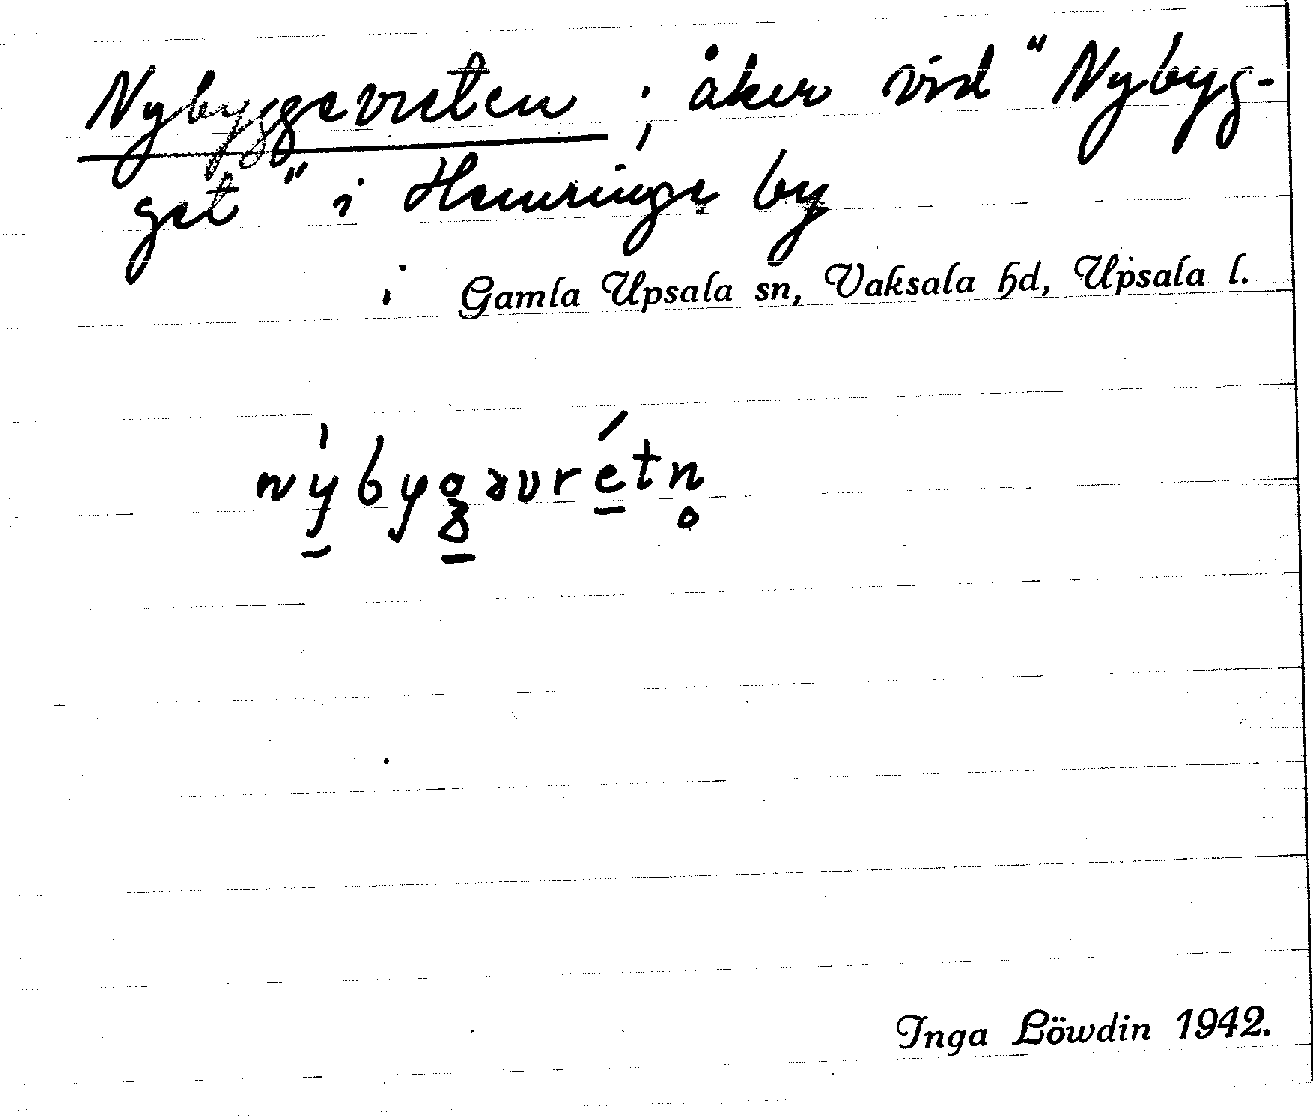 Nybyggevreten ; åker vid "Nybyg-
get" i Hemringe by
i Gamla Upsala sn, Vaksala hd, Upsala l.
ný̱byg̱əvré̱tn̥
Inga Löwdin 1942.